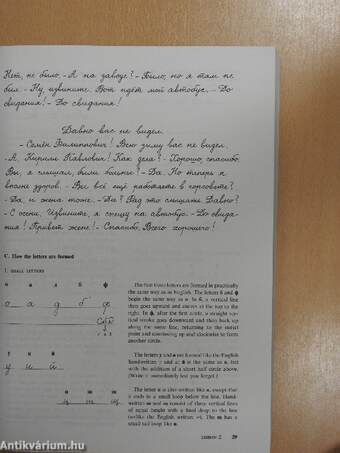 Нет, не было. - А на заводе? - Было, но я там не
был. - Ну, извините. Вот идёт мой автобус. - До
свидания! - До свидания!
Давно вас не видел.
- Семён Филиппович! Всю зиму вас не видел.
- А, Кирилл Павлович! Как дела? - Хорошо, спасибо.
Вы, я слышал, были больны? - Да. Но теперь я
вполне здоров. - Вы всё ещё работаете в горсовете?
- Да, и жена тоже. - Да? Рад это слышать. Давно?
- С осени. Извините, я спешу на автобус. - До свида-
ния! Привет жене! - Спасибо. Всего хорошего!
C. How the letters are formed
1. SMALL LETTERS
о а д б ф
о а д б ф
The first three letters are formed in practically
the same way as in English. The letters б and ф
begin the same way as о. In б, a vertical line
then goes upward and curves at the top to the
right. In ф, after the first circle, a straight ver-
tical stroke goes downward and then back up
along the same line, returning to the center
point and continuing up and clockwise to form
another circle.
у и й
у и й
The letters у and и are formed like the English
handwritten y and u; й is the same as и, but
with the addition of a short half circle above.
(Write it immediately lest you forget!)
ц ш щ
ц ш щ
The letter ц is also written like и, except that
it ends in a small loop below the line. Hand-
written ш and щ consist of three vertical lines
of equal height with a final drop to the line
(unlike the English written w). The щ has a
small tail loop like ц.
LESSON 2 29
antikvárium.hu